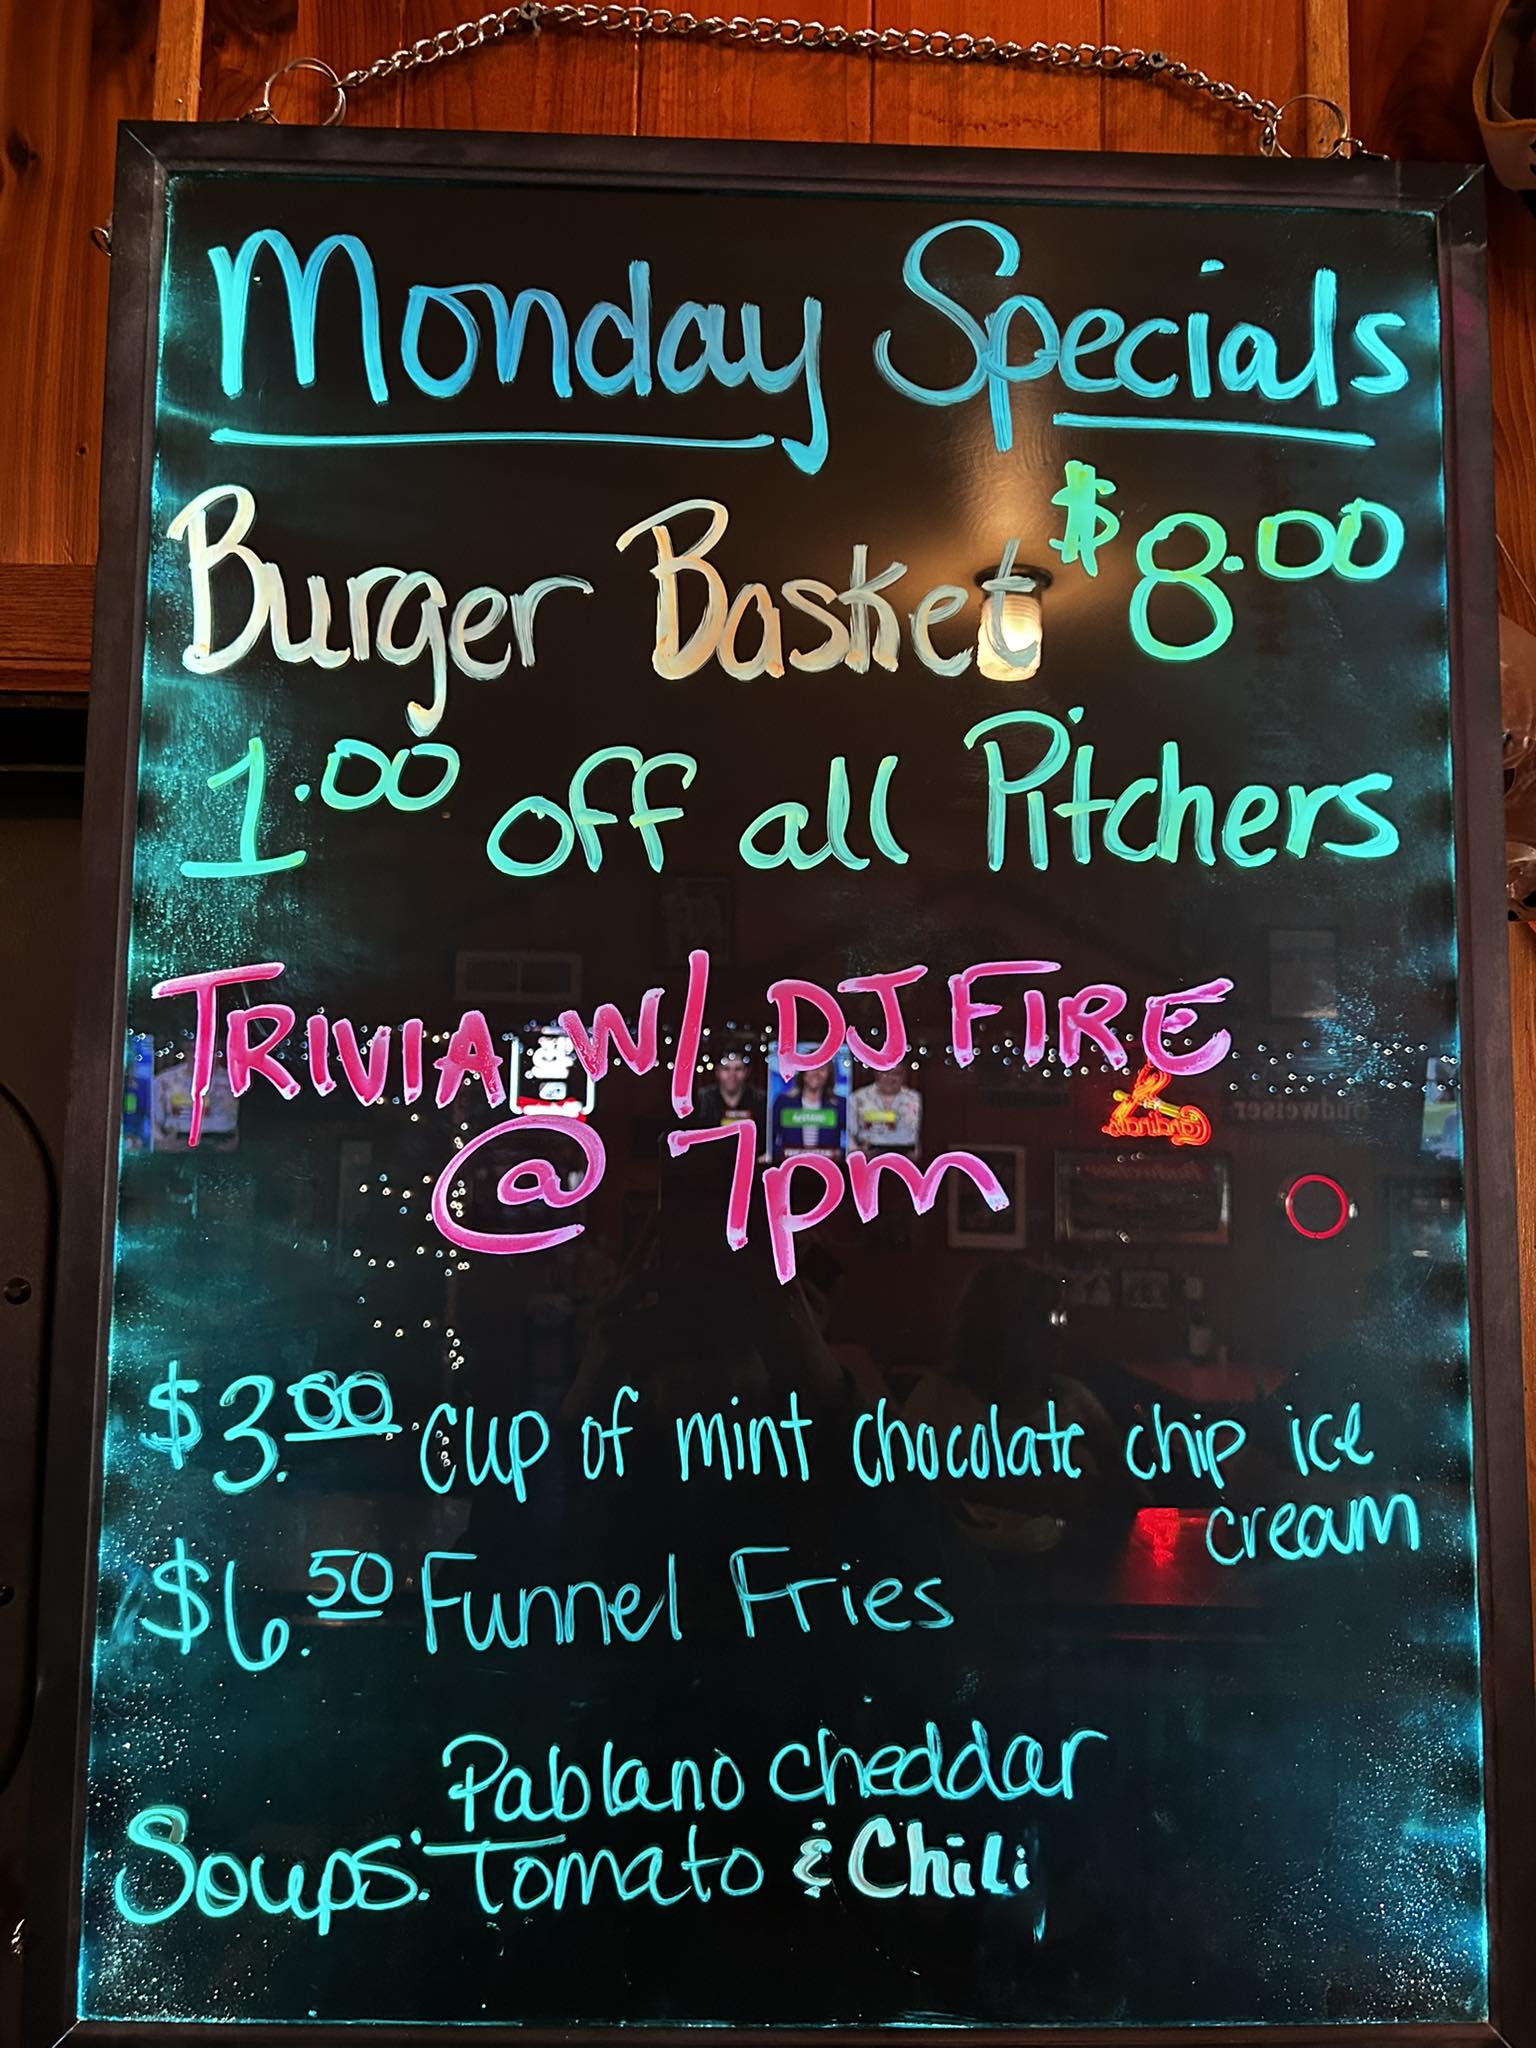 Monday Specials
Burger Basket $8.00
1.00 off all Pitchers
TRIVIA W/ DJ FIRE
@ 7pm
$3.00 cup of mint chocolate chip ice
cream
$6.50 Funnel Fries
Pablano cheddar
Soups: Tomato & Chili
Cardinals
Budweiser